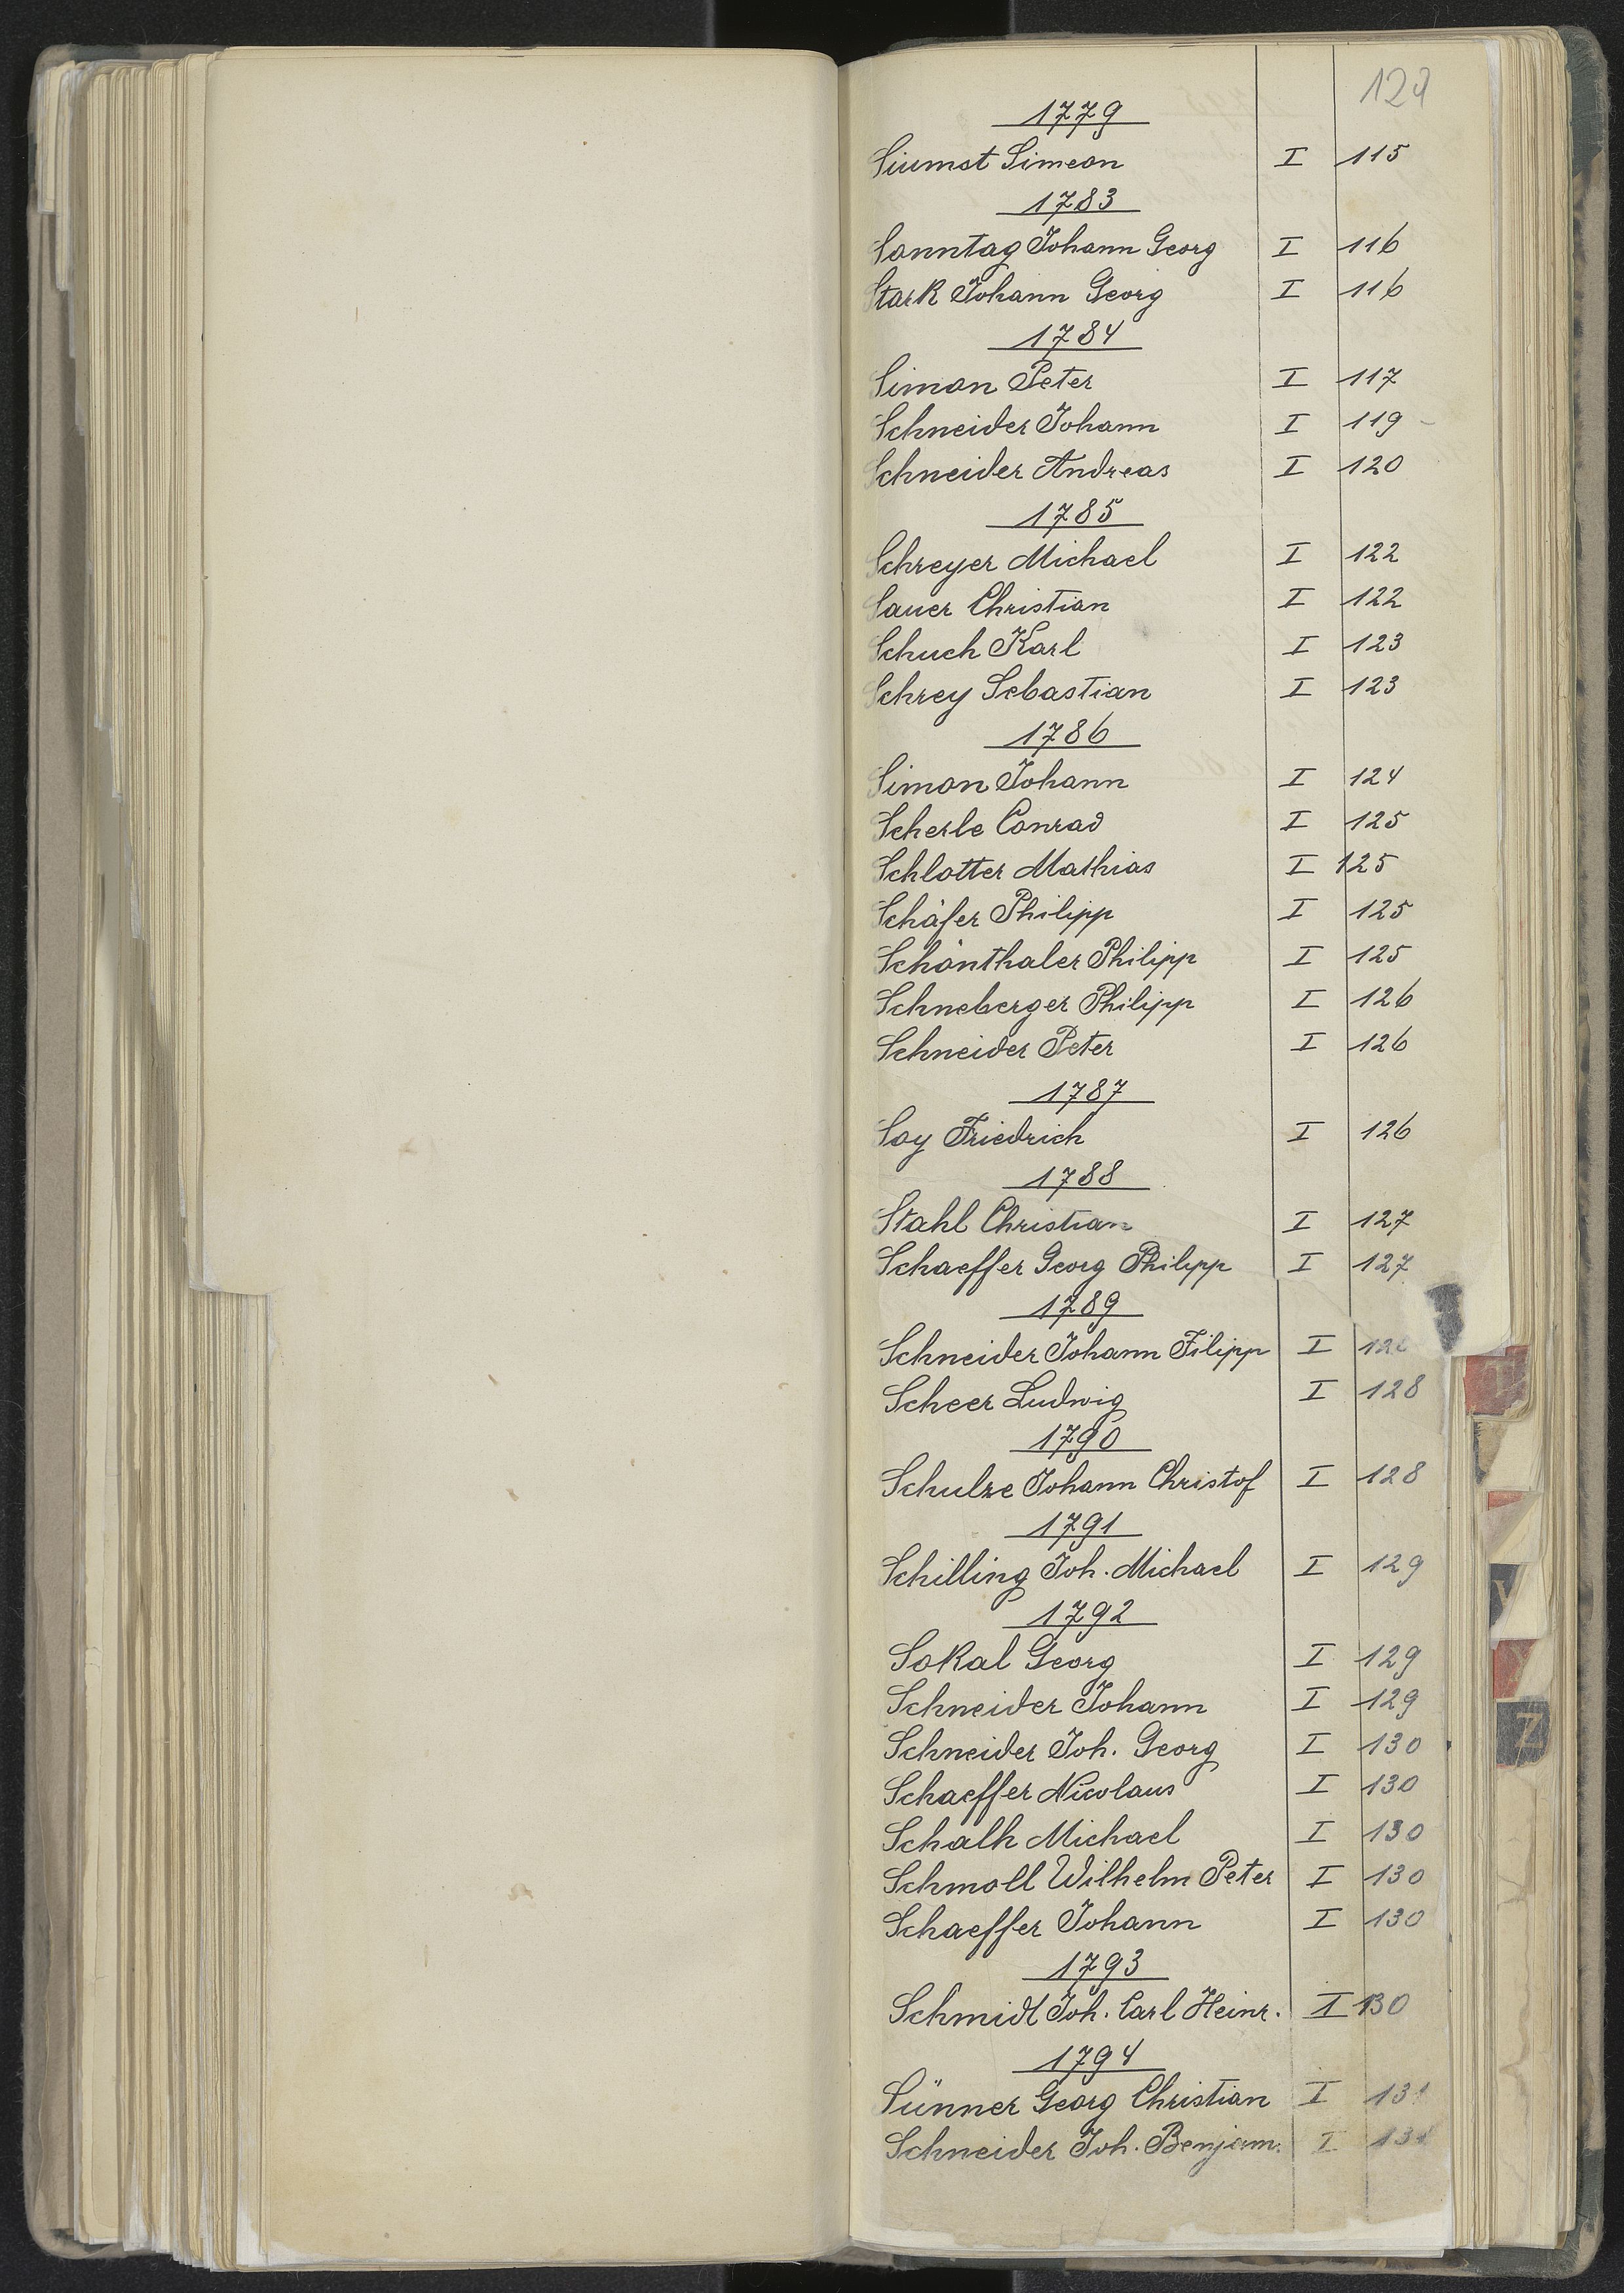 124
1779
Siumot Simeon I 115
1783
Sonntag Johann Georg I 116
Stark Johann Georg I 116
1784
Simon Peter I 117
Schneider Johann I 119
Schneider Andreas I 120
1785
Schreyer Michael I 122
Sauer Christian I 122
Schuch Karl I 123
Schrey Sebastian I 123
1786
Simon Johann I 124
Scherle Conrad I 125
Schlotter Mathias I 125
Schäfer Philipp I 125
Schönthaler Philipp I 125
Schneberger Philipp I 126
Schneider Peter I 126
1787
Soy Friedrich I 126
1788
Stahl Christian I 127
Schaeffer Georg Philipp I 127
1789
Schneider Johann Filipp I
Scheer Ludwig I 128
1790
Schulze Johann Christof I 128
1791
Schilling Joh. Michael I 129
1792
Sokal Georg I 129
Schneider Johann I 129
Schneider Joh. Georg I 130
Schaeffer Nicolaus I 130
Schalh Michael I 130
Schmoll Wilhelm Peter I 130
Schaeffer Johann I 130
1793
Schmidt Joh. Carl Heinr. I 130
1794
Sünner Georg Christian I 131
Schneider Joh. Benjam. I 131
Z